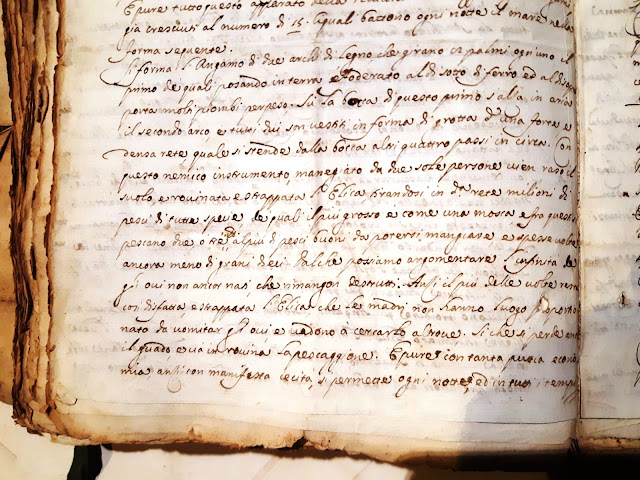 E pure tutto questo apparato della
già cresciuti al numero di 15. li quali battono ogni notte il mare nella
forma seguente.
Si forma l'Angamo di due archi di legno che girano 12 palmi ogni uno il
primo de quali posando in terra e foderato al di sotto di ferro ed al di sopra
porta molti piombi per peso. Su la bocca di questo primo s'alza in aria
il secondo arco, e tutti dui son vestiti in forma di grotta d'una forte e
densa rete quale si stende dalla bocca altri quattro passi in circa. Con
questo nemico instrumento maneggiato da due sole persone vien raso il
suolo, e rovinata e strappata l'Elica tirandosi in dª rete milioni di
pesci di tutte specie de quali il più grosso e come una mosca e fra questi
pescano due o tre al più di pesci buoni da potersi mangiare e spesse volte
ancora meno di grani dieci. Dal che possiamo argomentare l'infinità de
gl'ovi non ancor nati, che rimangon destrutti. Anzi il più delle volte resta
così disfatta e strappata l'Elica che le madri non hanno luogo proportio
nato da vomitar gl'ovi e vadono à cercarlo altrove. Si che si perde anco
il quado e va in rovina la pescaggione. E pure con tanta puoca econo
mia anzi con manifesta cecità, si permette ogni notte, ed in tutti i tempi